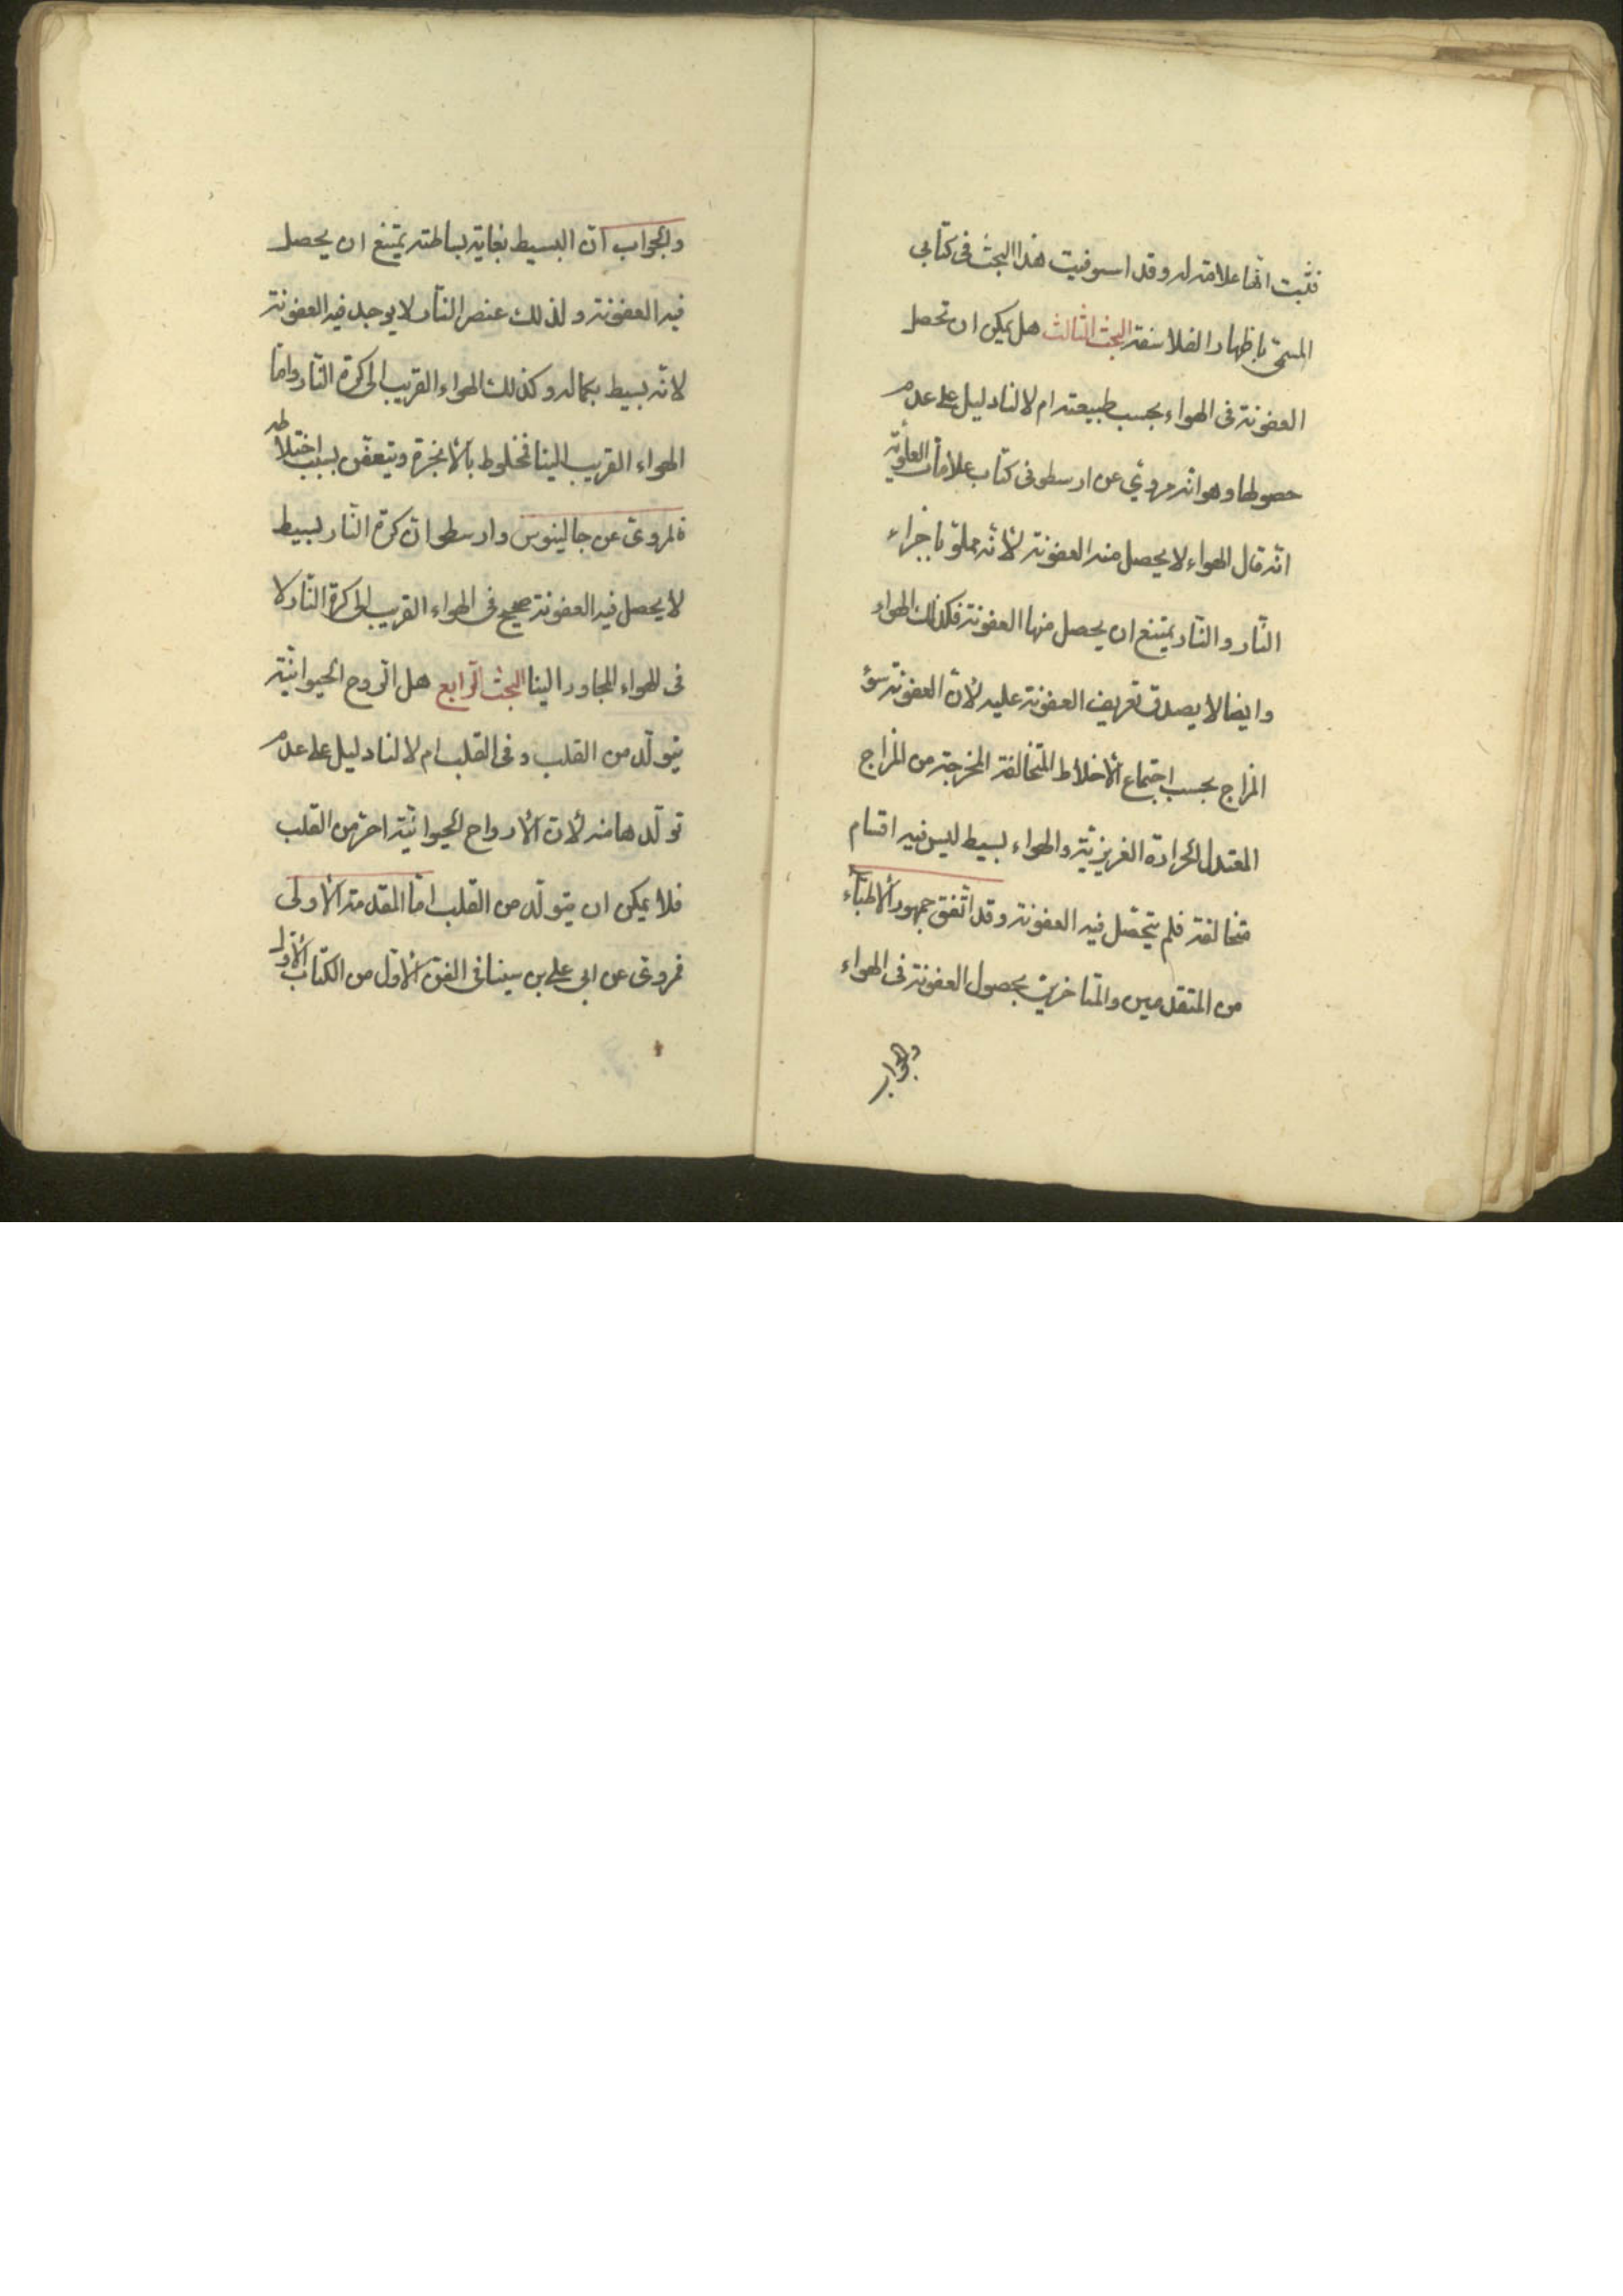 فثبت انّها علامة له وقد استوفيت هذا البحث فى كتابى
المسمّى باظهار الفلاسفة البحث الثالث هل يمكن ان تحصل
العفونة فى الهواء بحسب طبيعته ام لا لنا دليل على عدم
حصولها وهو انّه مروىّ عن ارسطو فى كتاب علامات العلويّة
انّه قال الهواء لا يحصل منه العفونة لأنّه مملوّ باجزاء
النّار والنّار يمتنع ان يحصل منها العفونة فكذلك الهواء
وايضا لا يصدق تعريف العفونة عليه لأنّ العفونة سؤ
المزاج بحسب اجتماع الأخلاط المتخالفة المخرجة من المزاج
المعتدل الحرارة الغريزيّة والهواء بسيط ليس فيه اقسام
متخالفة فلم يتحصّل فيه العفونة وقد اتّفق جمهور الأطبّاء
من المتقدمين والمتاخرين بحصول العفونة فى الهواء
والجواب
والجواب انّ البسيط بغاية بساطته يمتنع ان يحصل
فيه العفونة ولذلك عنصر النّار لا يوجد فيه العفونة
لانّه بسيط بكماله وكذلك الهواء القريب الى كرة النّار وامّا
الهواء القريب الينا فمخلوط بالأبخرة ويتعفّن بسبب اختلاطه
فالمروىّ عن جالينوس وارسطو انّ كرة النّار بسيط
لا يحصل فيه العفونة صحيح فى الهواء القريب الى كرة النّار لا
فى الهواء المجاور الينا البحث الرّابع هل الرّوح الحيوانيّة
يتولّد من القلب وفى القلب ام لا لنا دليل على عدم
تولّدها منه لأنّ الأرواح الحيوانيّة احرّ من القلب
فلا يمكن ان يتولّد من القلب امّا المقدمة الأولى
فمروىّ عن ابى على بن سينا فى الفنّ الأوّل من الكتاب الأوّل